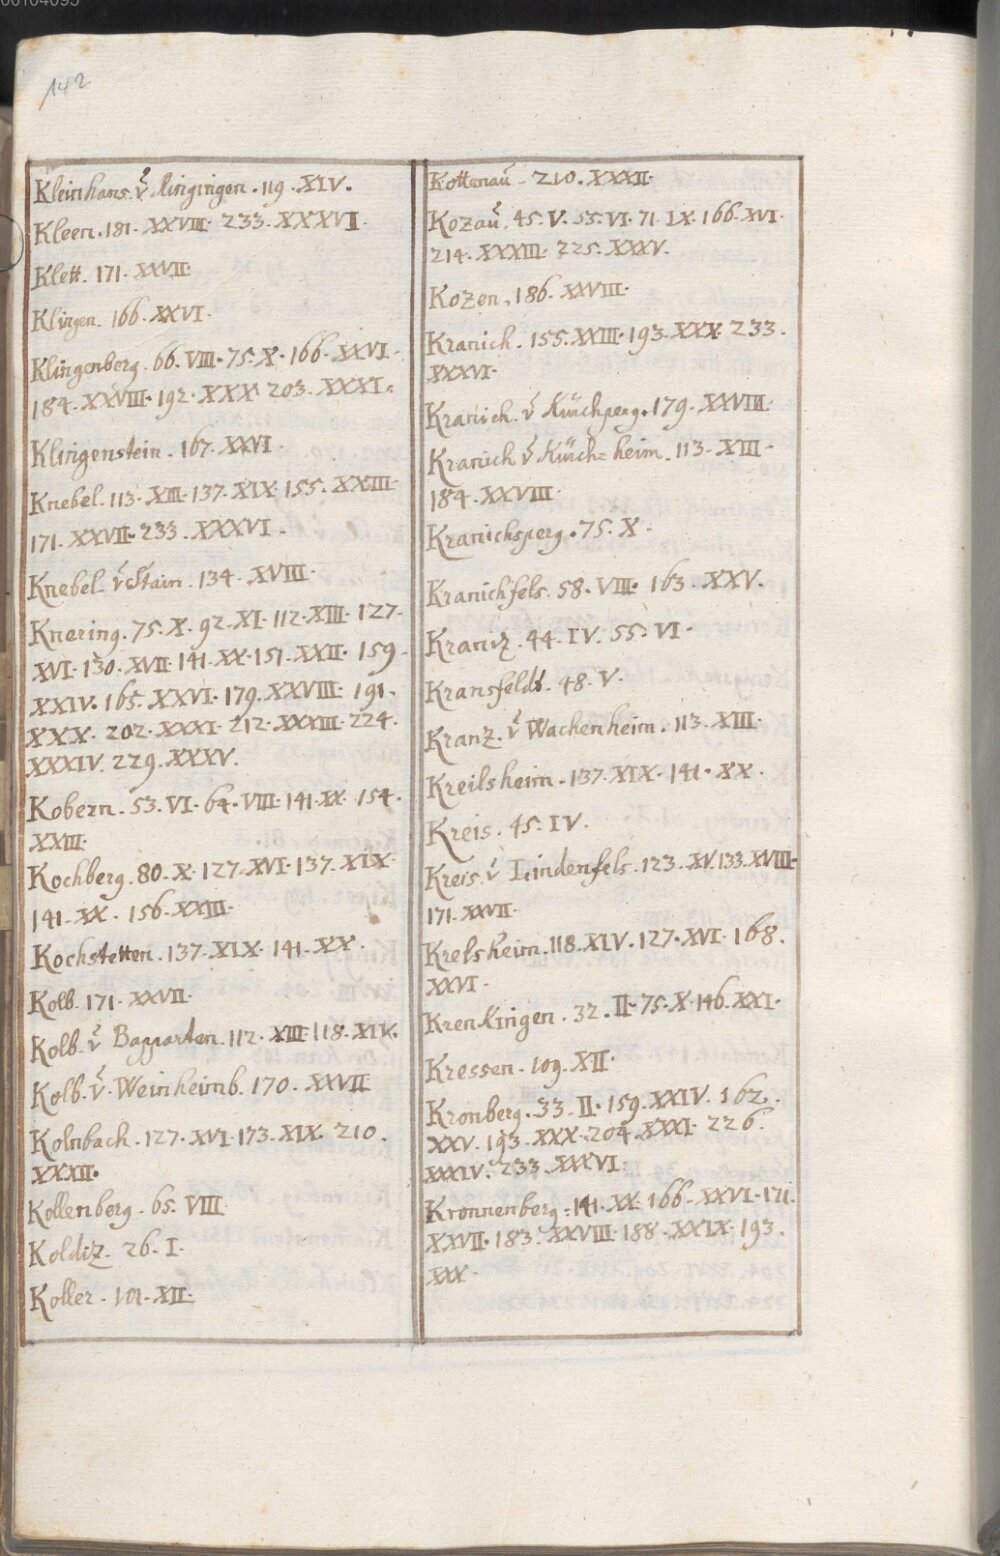 00104095
142
Kleinhans v̊ Kingingen . 119 . XIV .
Kleen . 181 . XXVIII . 233 . XXXVII .
Klett . 171 . XXVII .
Klingen . 166 . XXVI .
Klingenberg . 66 . VIII . 75 . X . 166 . XXVI .
184 . XXVIII . 192 . XXX . 203 . XXXI .
Klingenstein . 167 . XXVI .
Knebel . 113 . XIII . 137 . XIX . 155 . XXIII .
171 . XXVII . 233 . XXXVI .
Knebel v̊ Stain . 134 . XVIII .
Knering . 75 . X . 92 . XI . 112 . XIII . 127 .
XVI . 130 . XVII . 141 . XX . 151 . XXII . 159 .
XXIV . 165 . XXVI . 179 . XXVIII . 191 .
XXX . 202 . XXXI . 212 . XXXIII . 224 .
XXXIV . 229 . XXXV .
Kobern . 53 . VI . 64 . VIII . 141 . XX . 154 .
XXIII .
Kochberg . 80 . X . 127 . XVI . 137 . XIX .
141 . XX . 156 . XXIII .
Kochstetten . 137 . XIX . 141 . XX .
Kolb . 171 . XXVII .
Kolb v̊ Bapparten . 112 . XIII . 118 . XIV .
Kolb . v̊ . Weinheimb . 170 . XXVII
Kolnbach . 127 . XVI . 173 . XIX . 210 .
XXXII .
Kollenberg . 65 . VIII .
Koldiz . 26 . I .
Koller . 101 . XII .
Kottenaŭ . 210 . XXXII .
Kozaŭ . 45 . V . 55 . VI . 71 . IX . 166 . XVI .
214 . XXXIII . 225 . XXXV .
Kozen . 186 . XXVIII .
Kranich . 155 . XXIII . 193 . XXX . 233 .
XXXVI .
Kranich . v̊ Kürchperg . 179 . XXVIII .
Kranich v̊ Kürch= heim . 113 . XIII .
184 . XXVIII .
Kranichsperg . 75 . X .
Kranichfels . 58 . VIII . 163 . XXV .
Kraniz . 44 . IV . 55 . VI .
Kransfeldt . 48 . V .
Kranz . v̊ Wachenheim . 113 . XIII .
Kreilsheim . 137 . XIX . 141 . XX .
Kreis . 45 . IV .
Kreis . v̊ Lindenfels . 123 . XV . 133 . XVIII .
171 . XXVII .
Krelsheim . 118 . XIV . 127 . XVI . 168 .
XXVI .
Krenkingen . 32 . II . 75 . X . 146 . XXI .
Kressen . 109 . XII .
Kronberg . 33 . II . 159 . XXIV . 162 .
XXV . 193 . XXX . 204 . XXXI . 226 .
XXXIV . 233 . XXXVI .
Kronnenberg . 141 . XX . 166 . XXVI . 171 .
XXVII . 183 . XXVIII . 188 . XXIX . 193 .
XXX .